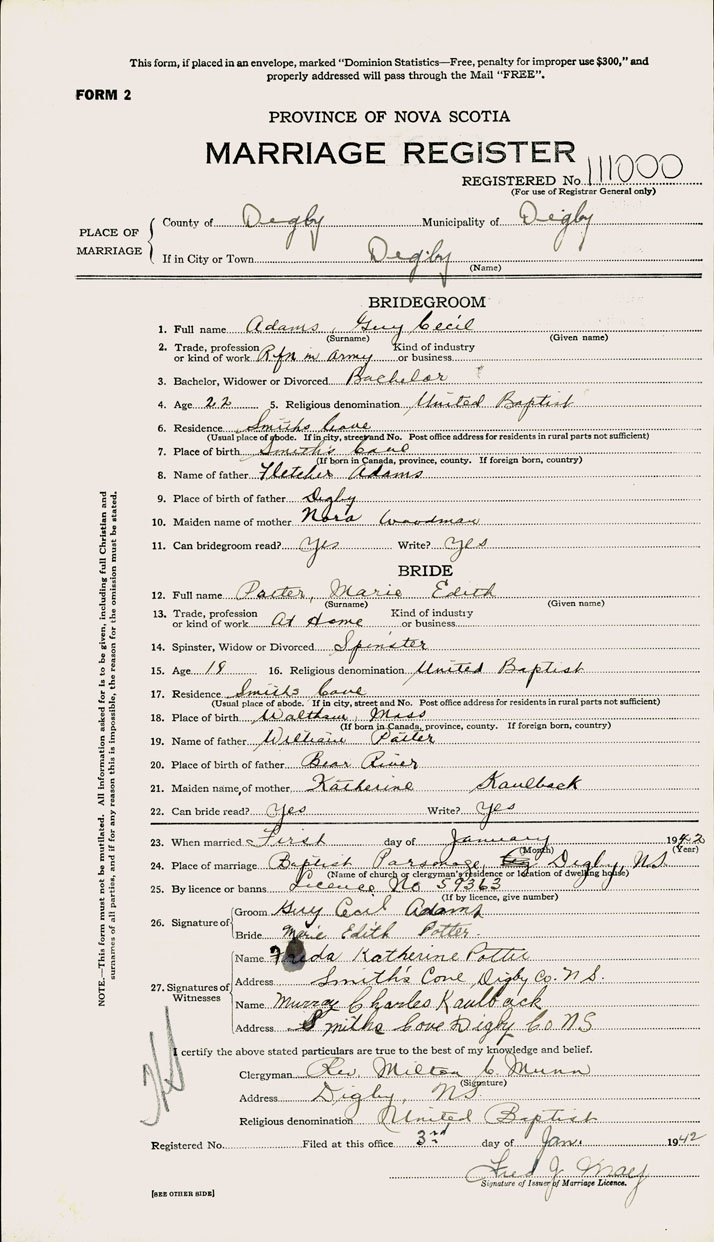 This form, if placed in an envelope, marked “Dominion Statistics—Free, penalty for improper use $300,” and
properly addressed will pass through the Mail “FREE”.
FORM 2
PROVINCE OF NOVA SCOTIA
MARRIAGE REGISTER
REGISTERED No. 111000
(For use of Registrar General only)
PLACE OF MARRIAGE
County of Digby Municipality of Digby
If in City or Town Digby
(Name)
BRIDEGROOM
1. Full name Adams, Guy Cecil
(Surname) (Given name)
2. Trade, profession or kind of work Rfn in Army Kind of industry or business
3. Bachelor, Widower or Divorced Bachelor
4. Age 22 5. Religious denomination United Baptist
6. Residence Smiths Cove
(Usual place of abode. If in city, street and No. Post office address for residents in rural parts not sufficient)
7. Place of birth Smith's Cove
(If born in Canada, province, county. If foreign born, country)
8. Name of father Fletcher Adams
9. Place of birth of father Digby
10. Maiden name of mother Nora Woodman
11. Can bridegroom read? Yes Write? Yes
BRIDE
12. Full name Potter, Marie Edith
(Surname) (Given name)
13. Trade, profession or kind of work At Home Kind of industry or business
14. Spinster, Widow or Divorced Spinster
15. Age 19 16. Religious denomination United Baptist
17. Residence Smiths Cove
(Usual place of abode. If in city, street and No. Post office address for residents in rural parts not sufficient)
18. Place of birth Waltham, Mass
(If born in Canada, province, county. If foreign born, country)
19. Name of father William Potter
20. Place of birth of father Bear River
21. Maiden name of mother Katherine Kaulback
22. Can bride read? Yes Write? Yes
23. When married First day of January 1942
(Month) (Year)
24. Place of marriage Baptist Parsonage, Digby, N.S.
(Name of church or clergyman's residence or location of dwelling house)
25. By licence or banns Licence No 59363
(If by licence, give number)
26. Signature of
Groom Guy Cecil Adams
Bride Marie Edith Potter.
27. Signatures of Witnesses
Name Freda Katherine Potter
Address Smith's Cove Digby Co. N.S.
Name Murray Charles Kaulback
Address Smiths Cove Digby Co N.S
I certify the above stated particulars are true to the best of my knowledge and belief.
Clergyman Rev. Milton C. Munn
(Signature)
Address Digby, N.S.
Religious denomination United Baptist
Registered No. Filed at this office 3rd day of Jan. 1942
Fred J.
Signature of Issuer of Marriage Licence.
[SEE OTHER SIDE]
NOTE.—This form must not be mutilated. All information asked for is to be given, including full Christian and
surnames of all parties, and if for any reason this is impossible, the reason for the omission must be stated.